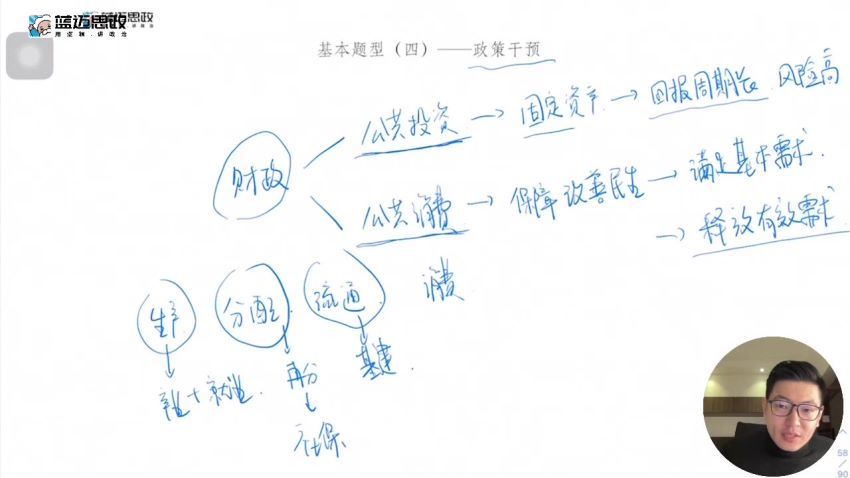 蓝迈思政
用逻辑·讲政治
基本题型（四）——政策干预
财政
公共投资 → 固定资产 → 回报周期长 风险高
公共消费 → 保障改善民生 → 满足基本需求.
→ 释放有效需求
生产 分配 流通 消费
再分 基建.
社保
58
/
90